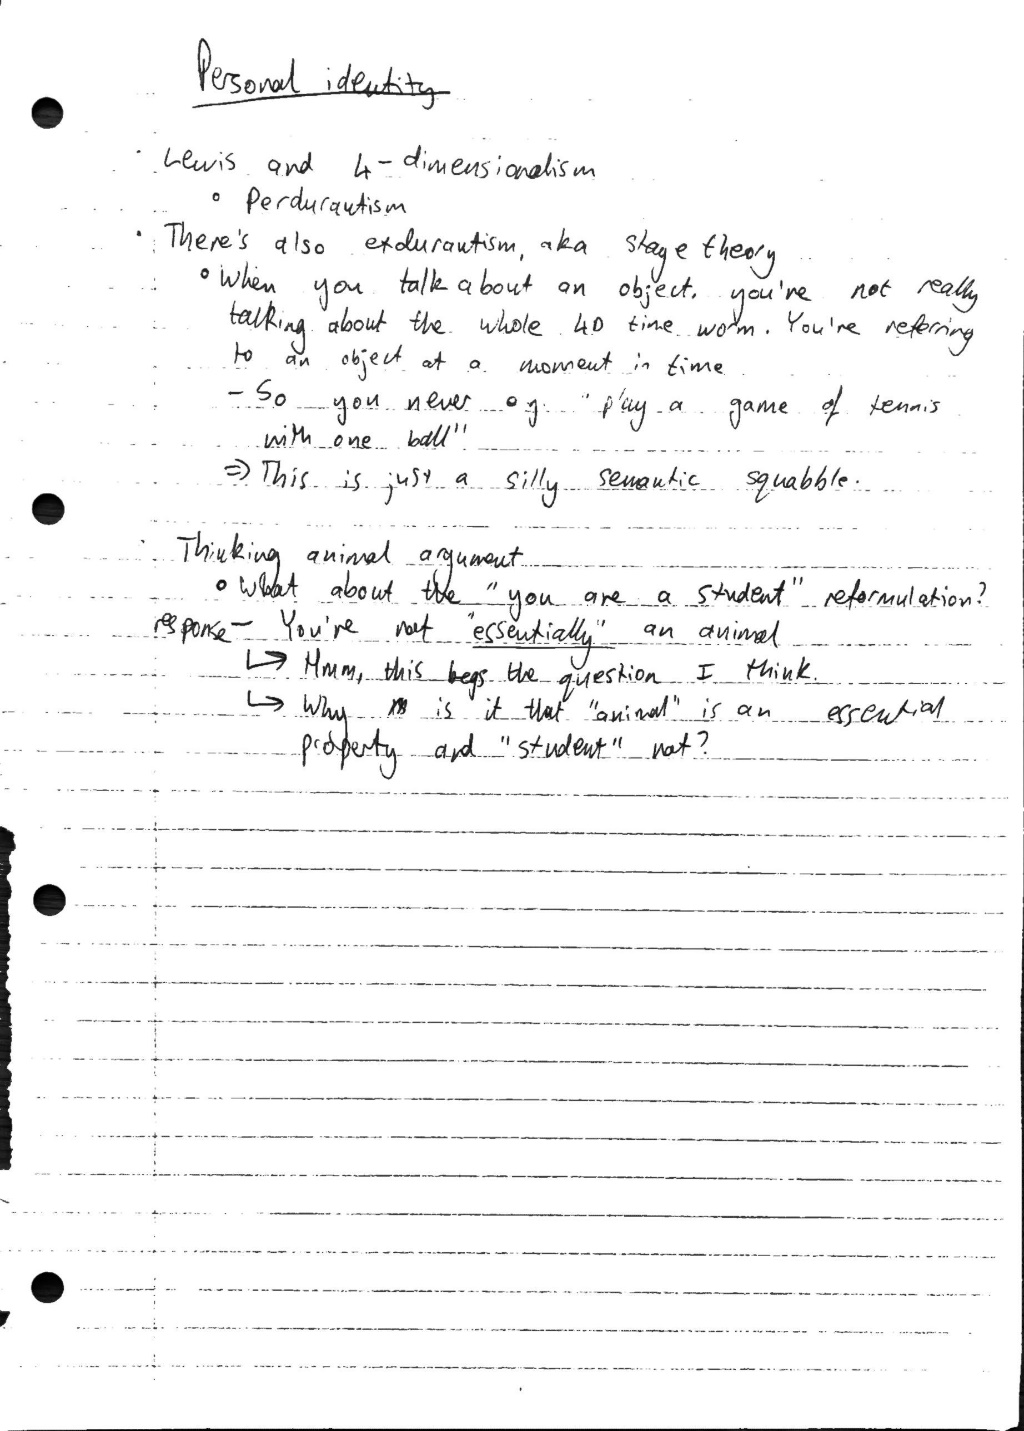 Personal identity
· Lewis and 4-dimensionalism
∘ Perdurantism
· There's also exdurantism, aka stage theory
∘ When you talk about an object, you're not really
talking about the whole 4D time worm. You're referring
to an object at a moment in time
- So you never eg. "play a game of tennis
with one ball"
⇒ This is just a silly semantic squabble.
· Thinking animal argument
∘ What about the "you are a student" reformulation?
response - You're not "essentially" an animal
↳ Hmm, this begs the question I think.
↳ Why is it that "animal" is an essential
property and "student" not?